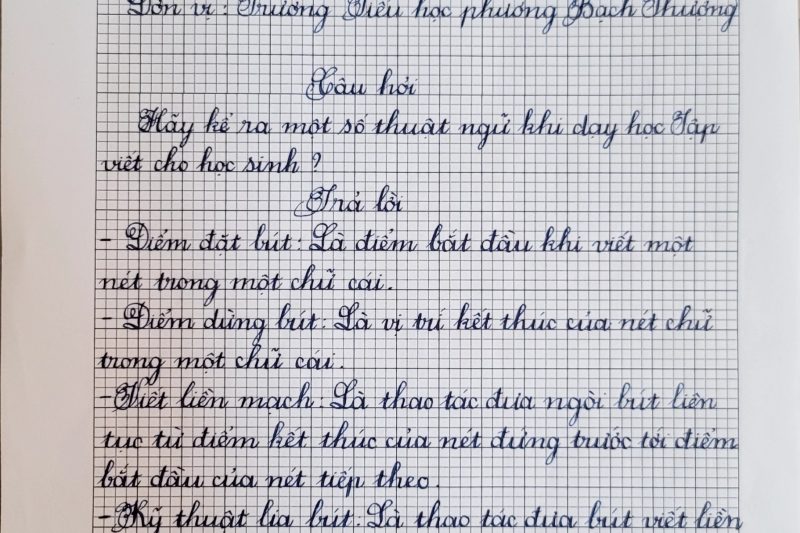 Đơn vị: Trường Tiểu học phường Bạch Thượng
Câu hỏi
Hãy kể ra một số thuật ngữ khi dạy học Tập
viết cho học sinh?
Trả lời
- Điểm đặt bút: Là điểm bắt đầu khi viết một
nét trong một chữ cái.
- Điểm dừng bút: Là vị trí kết thúc của nét chữ
trong một chữ cái.
- Viết liền mạch: Là thao tác đưa ngòi bút liên
tục từ điểm kết thúc của nét đứng trước tới điểm
bắt đầu của nét tiếp theo.
- Kỹ thuật lia bút: Là thao tác đưa bút viết liền